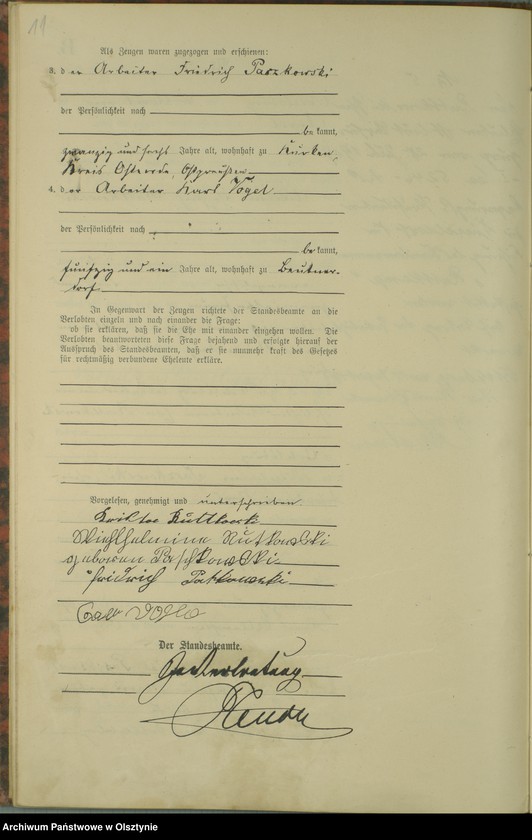 19
Als Zeugen waren zugezogen und erschienen:
3. der Arbeiter Friedrich Paszkowski
der Persönlichkeit nach
be kannt,
zwanzig und sechs Jahre alt, wohnhaft zu Kurken,
Kreis Osterode, Ostpreußen
4. der Arbeiter Karl Vogel
der Persönlichkeit nach
be kannt,
fünfzig und ein Jahre alt, wohnhaft zu Beutner-
dorf
In Gegenwart der Zeugen richtete der Standesbeamte an die
Verlobten einzeln und nach einander die Frage:
ob sie erklären, daß sie die Ehe mit einander eingehen wollen. Die
Verlobten beantworteten diese Frage bejahend und erfolgte hierauf der
Ausspruch des Standesbeamten, daß er sie nunmehr kraft des Gesetzes
für rechtmäßig verbundene Eheleute erkläre.
Vorgelesen, genehmigt und unterschrieben.
Ruttkowski
Wiehlhelmine Rutkowski
geboren Paschkowski
Friedrich Patkowski
Der Standesbeamte.
In Vertretung
Archiwum Państwowe w Olsztynie